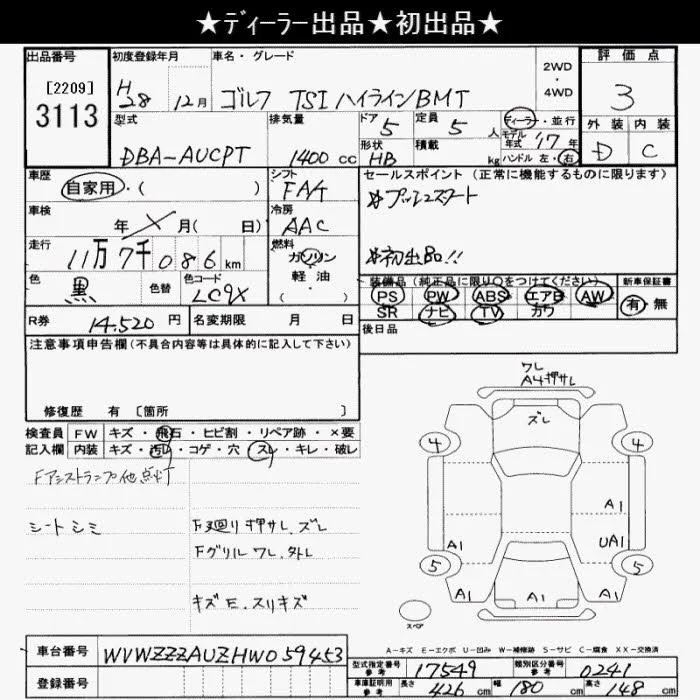 ★ディーラー出品★初出品★
出品番号 初度登録年月 車名・グレード 評価点
[2209] 3113
H28 12月 ゴルフ TSI ハイラインBMT 2WD・4WD 3
型式 排気量 ドア 5 定員 5人 ディーラー・並行 外装 内装
DBA-AUCPT 1400cc 形状 HB 積載 kg モデル年式 17年 ハンドル 左・右 D C
車歴 自家用・( ) シフト FAA セールスポイント(正常に機能するものに限ります)
*プッシュスタート
車検 年 月( 日) 冷房 AAC
走行 11万7千086km 燃料 ガソリン 軽油・( )
*初出品!!
色 黒 色替 色コード LC9X 装備品(純正品に限り○をつけてください) 新車保証書
PS PW ABS エアB AW 有・無
SR ナビ TV カワ
R券 14,520円 名変期限 月 日 後日品
注意事項申告欄(不具合内容等は具体的に記入して下さい)
修復歴 有 [箇所 ]
検査員 FW キズ・飛石・ヒビ割・リペア跡・×要
記入欄 内装 キズ・汚れ・コゲ・穴・スレ・キレ・破レ
Fアシストランプ他点灯
シート シミ
F廻り 押サレ、ズレ
Fグリル ワレ、外レ
キズ E、スリキズ
ワレ
A4押サレ
ズレ
4 4
A1
A1 UA1
5 5
A1 A1 A1
スペア
A-キズ E-エクボ U-凹み W-補修跡 S-サビ C-腐食 XX-交換済
車台番号 WVWZZZAUZHW059453
登録番号
型式指定番号 参考 17549 類別区分番号 参考 0241
車庫証明用 参考 長さ 426cm 幅 180cm 高さ 148cm